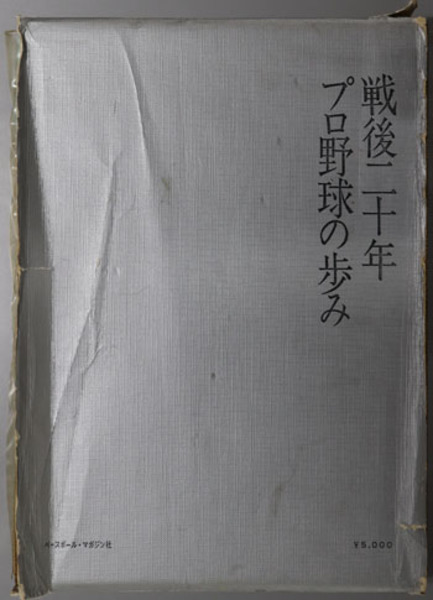 戦後二十年
プロ野球の歩み
ベースボール・マガジン社
¥5,000